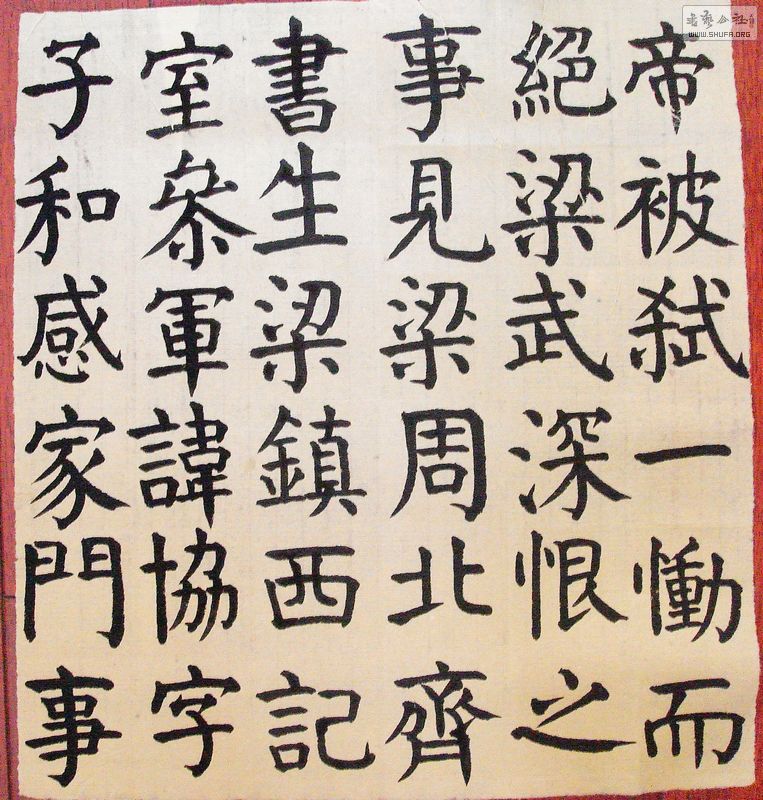 帝被弑一慟而
絕梁武深恨之
事見梁周北齊
書生梁鎮西記
室叅軍諱協字
子和感家門事
WWW.SHUFA.ORG